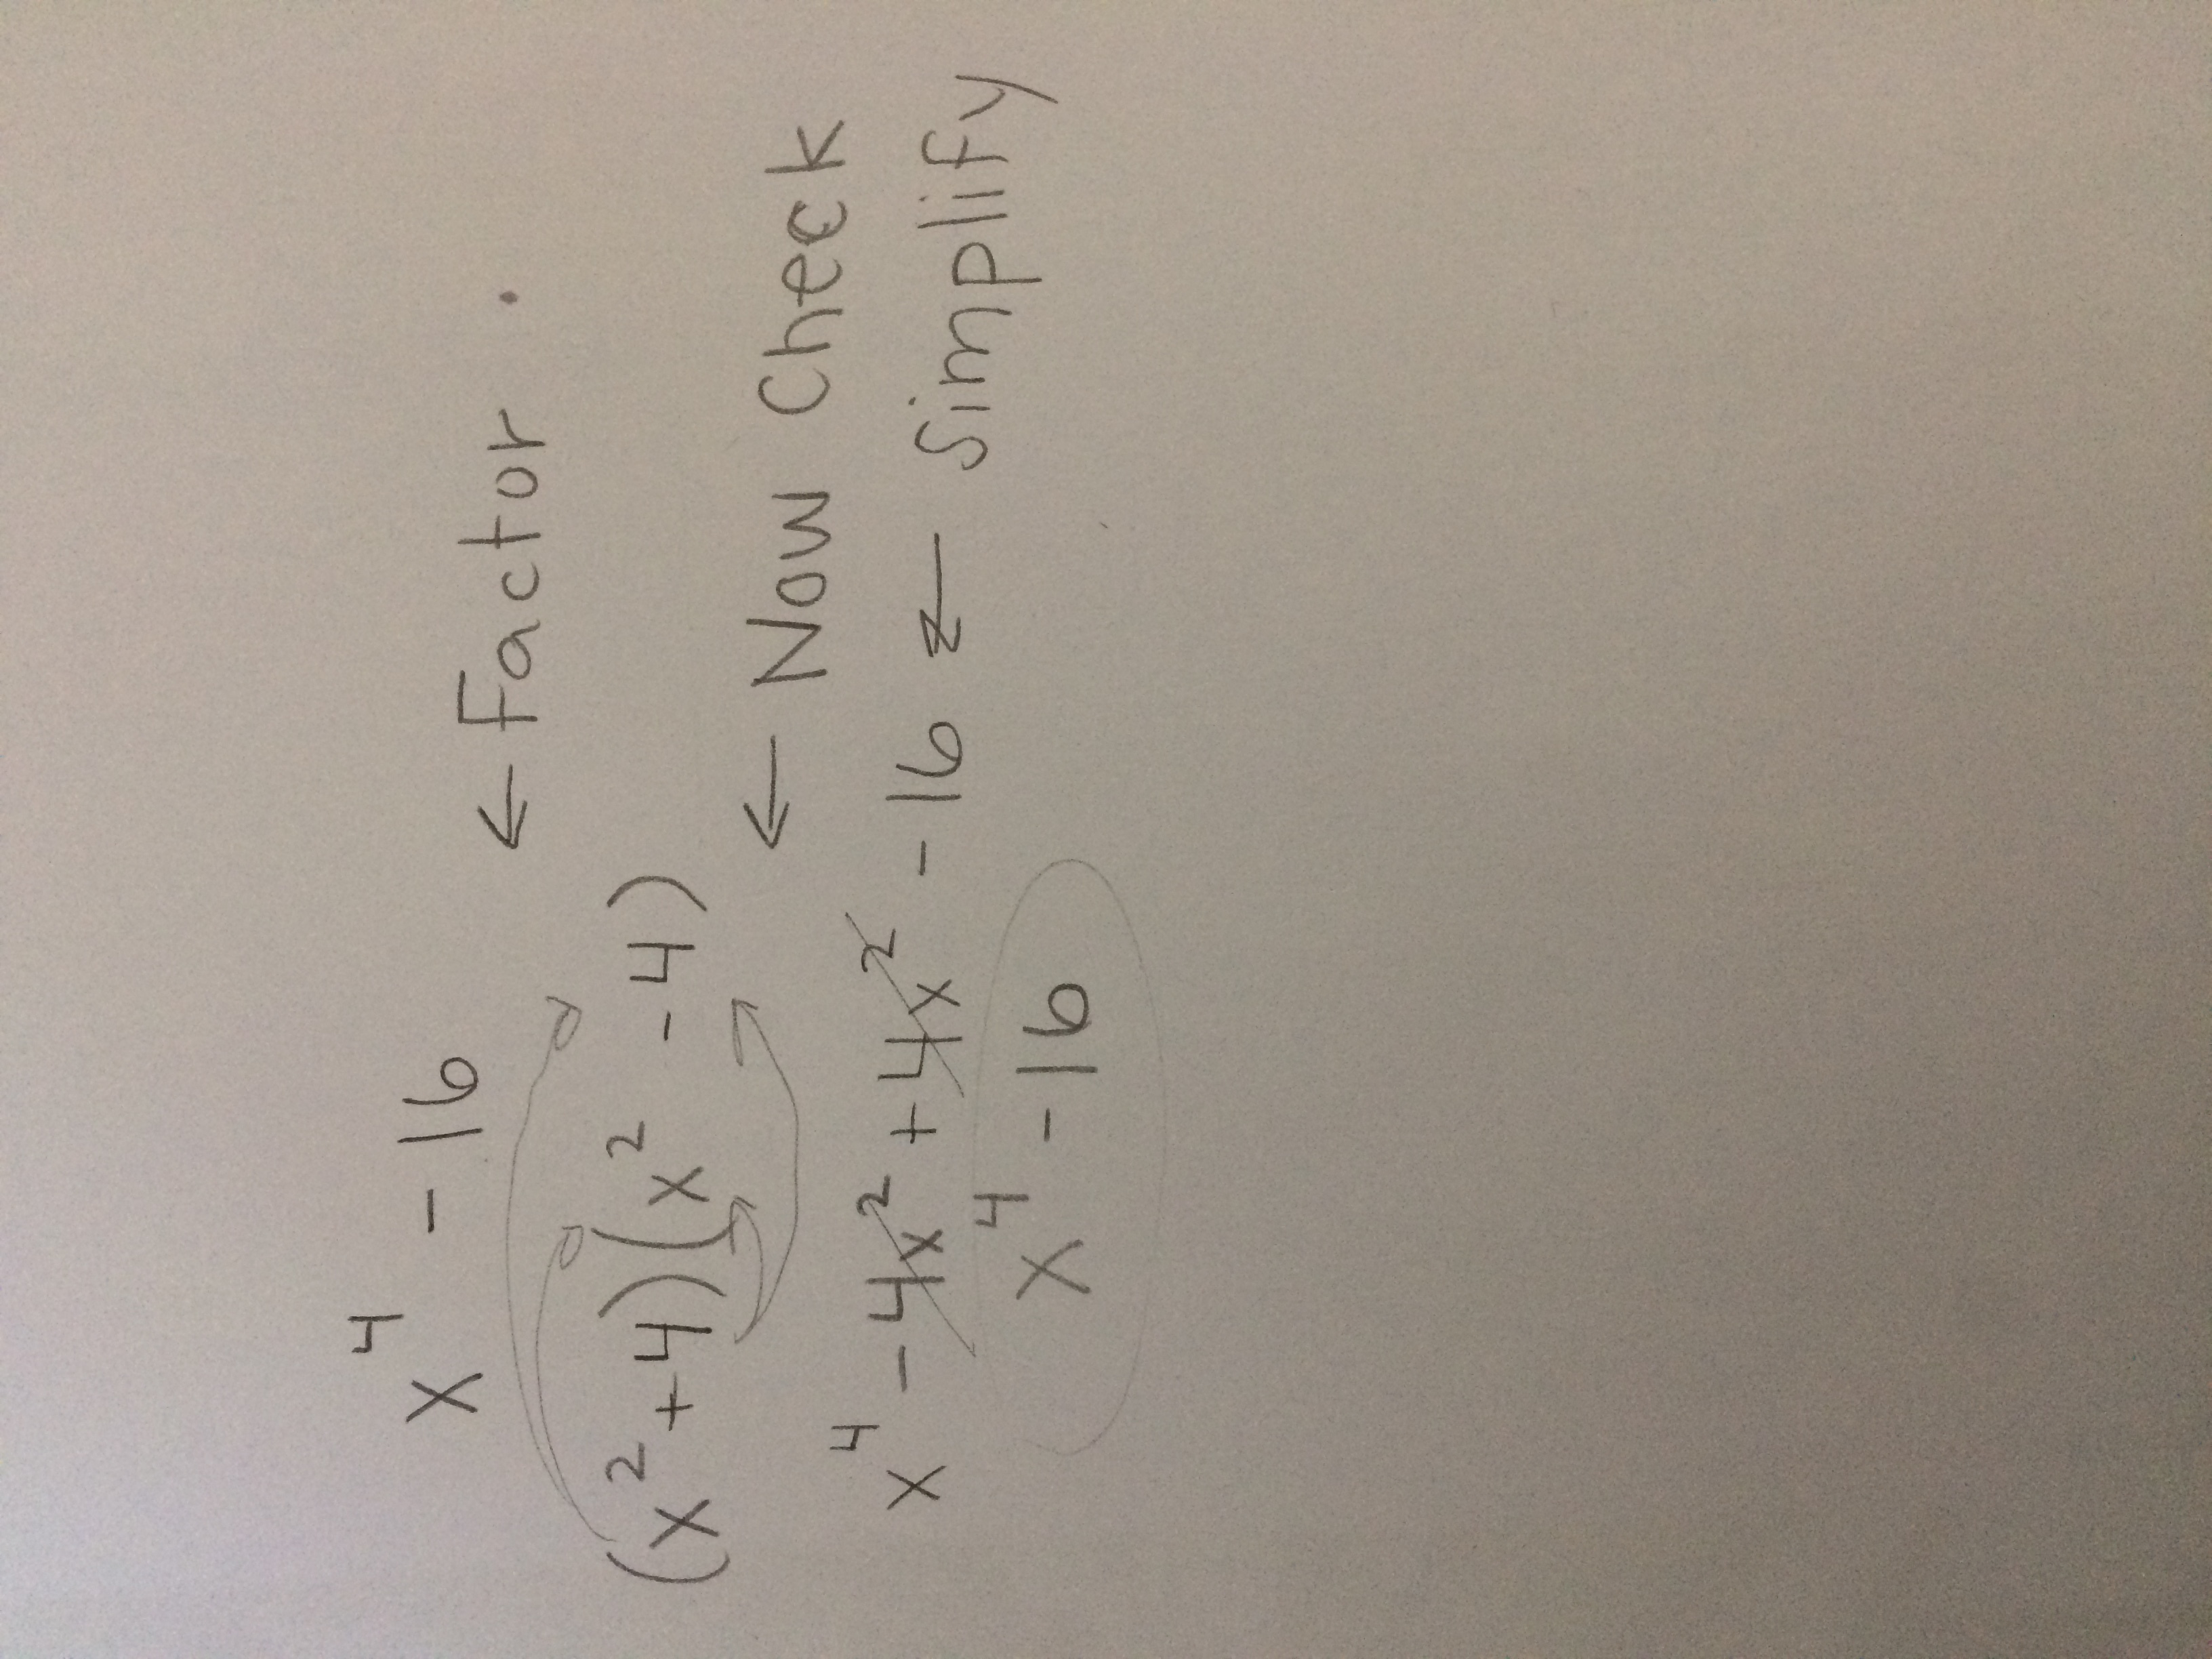 x⁴ - 16 ← Factor
(x² + 4)(x² - 4)
← Now Check
x⁴ - 4x² + 4x² - 16 ← Simplify
x⁴ - 16